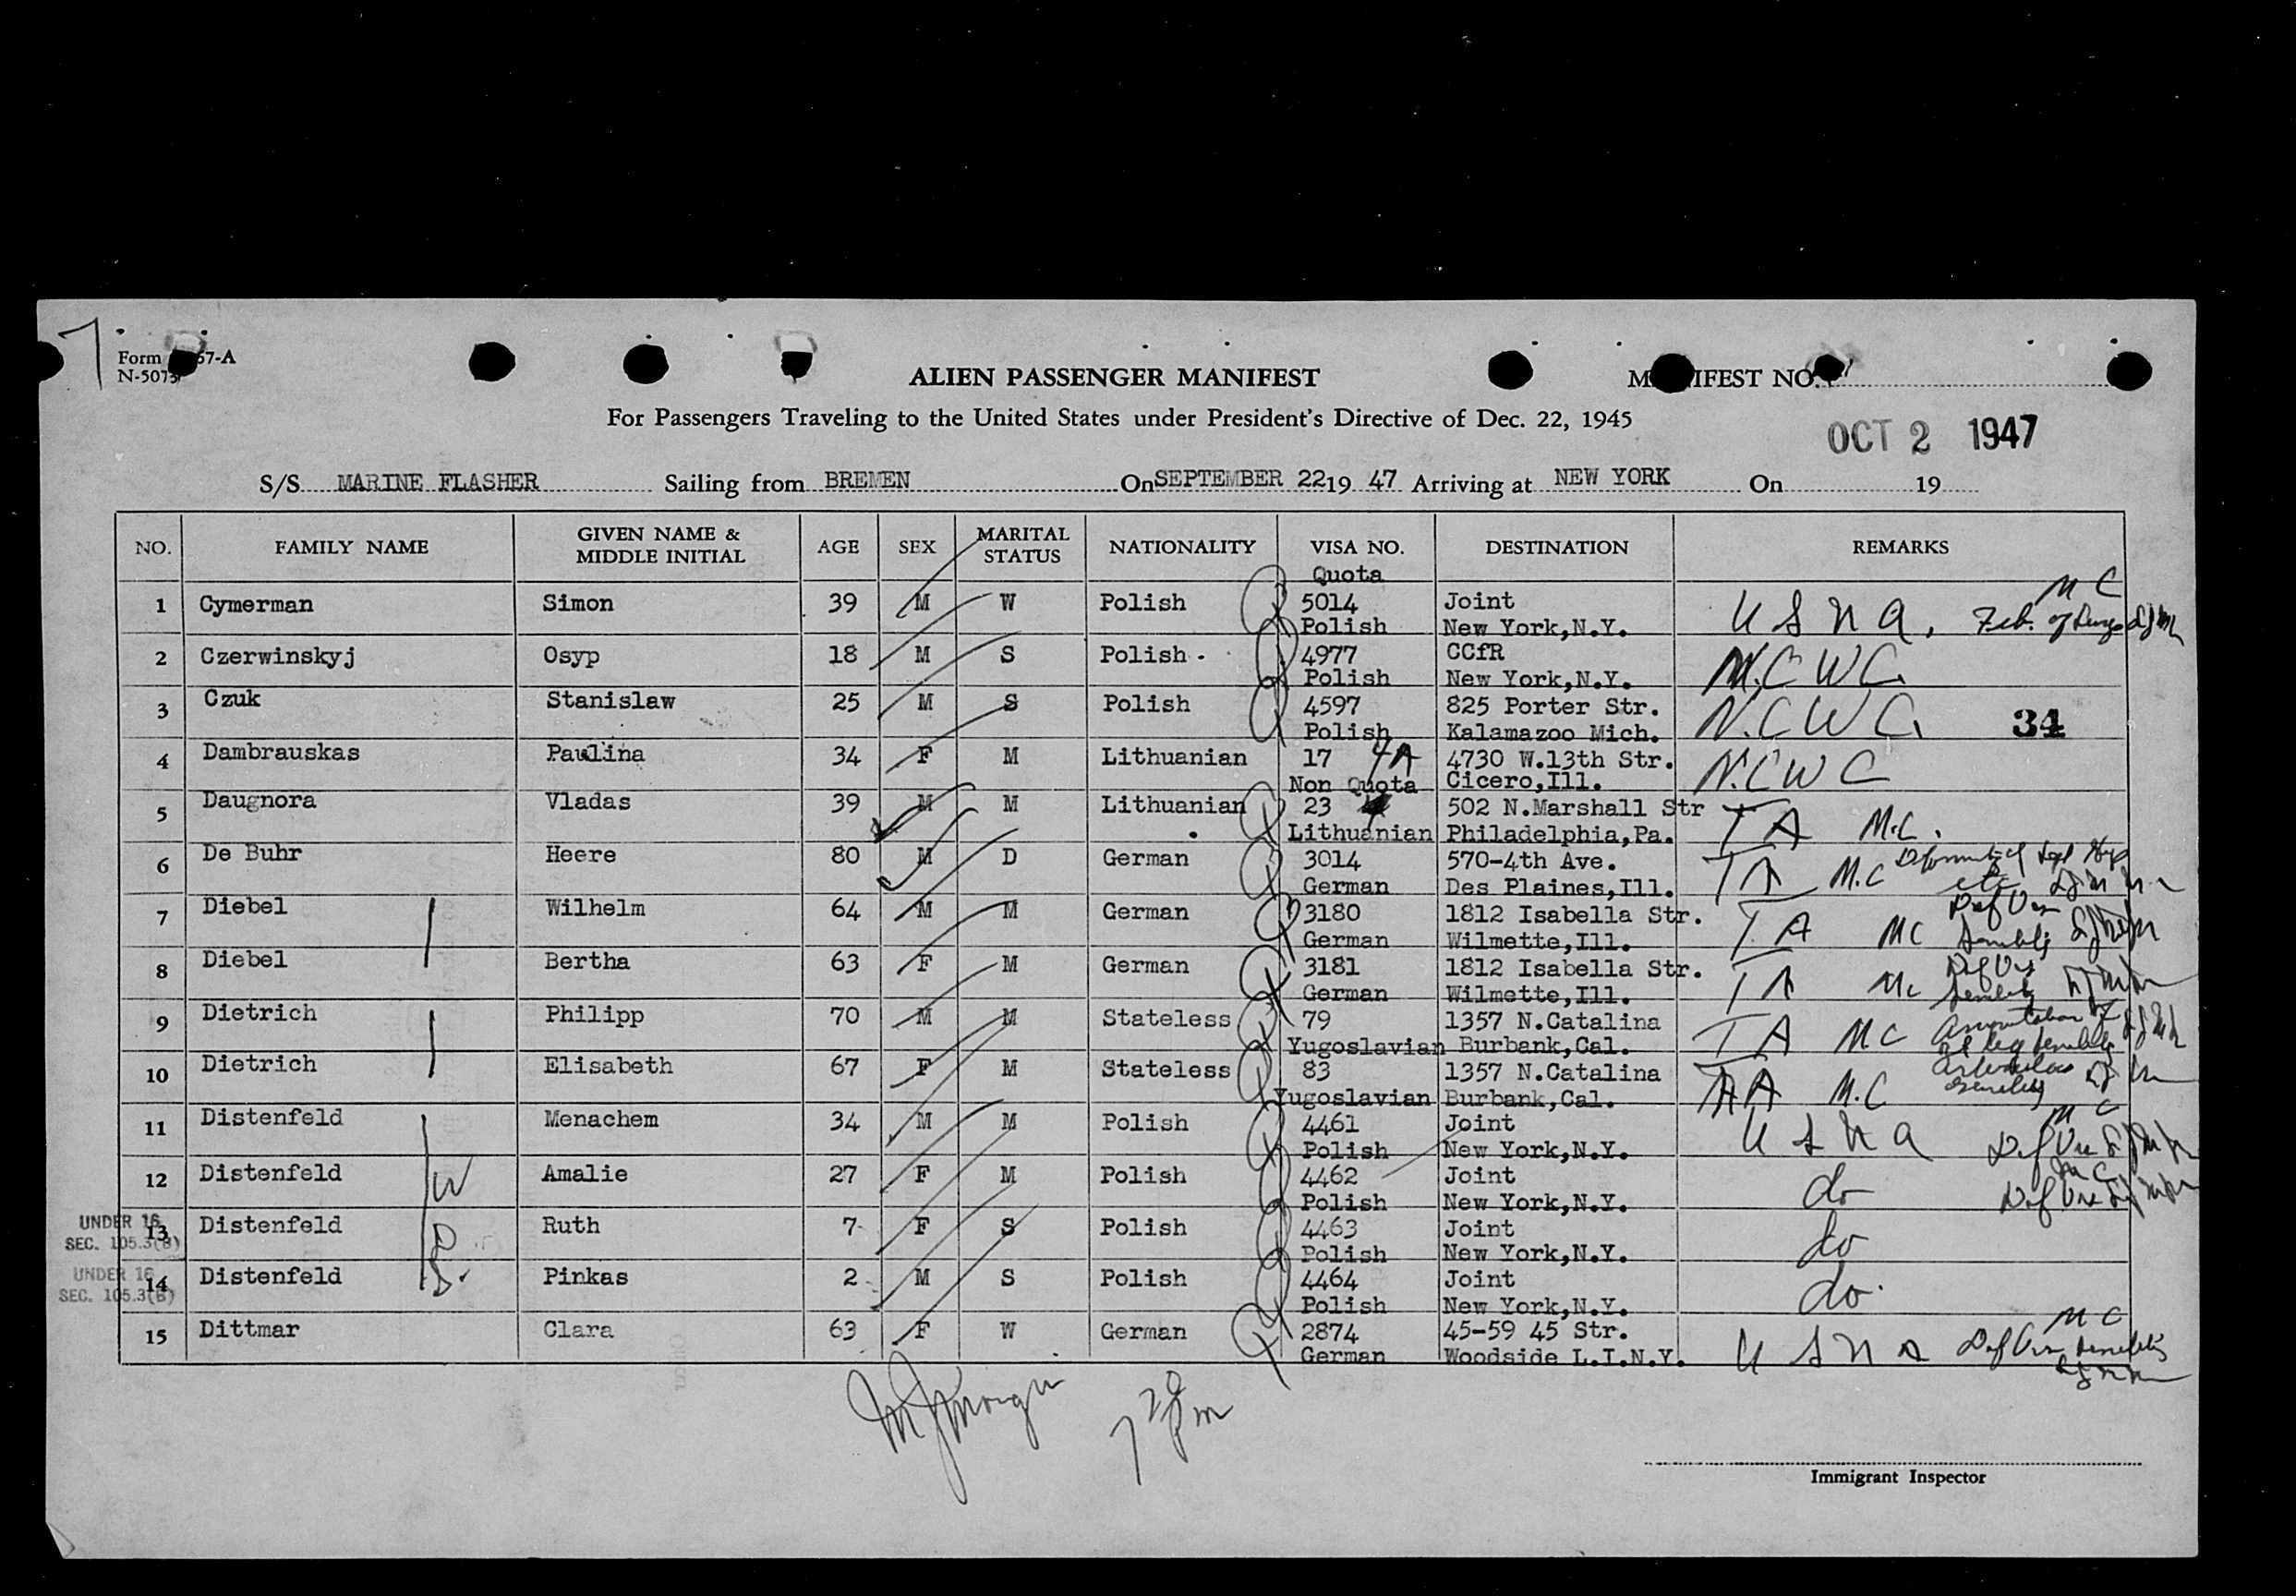 7
Form 57-A
N-5073
ALIEN PASSENGER MANIFEST
MANIFEST NO.
For Passengers Traveling to the United States under President's Directive of Dec. 22, 1945
OCT 2 1947
S/S MARINE FLASHER Sailing from BREMEN On SEPTEMBER 22 19 47 Arriving at NEW YORK On 19
NO. FAMILY NAME GIVEN NAME & MIDDLE INITIAL AGE SEX MARITAL STATUS NATIONALITY VISA NO. DESTINATION REMARKS
Quota
M C
1 Cymerman Simon 39 M W Polish 5014 Joint U S N A,
Polish New York,N.Y.
2 Czerwinskyj Osyp 18 M S Polish 4977 CCfR N.C W C.
Polish New York,N.Y.
3 Czuk Stanislaw 25 M S Polish 4597 825 Porter Str. N.C W C. 34
Polish Kalamazoo Mich.
4 Dambrauskas Paulina 34 F M Lithuanian 17 4A 4730 W.13th Str. N.C W C
Non Quota Cicero,Ill.
5 Daugnora Vladas 39 M M Lithuanian 23 502 N.Marshall Str T A M.C.
Lithuanian Philadelphia,Pa.
6 De Buhr Heere 80 M D German 3014 570-4th Ave. T A M.C
German Des Plaines,Ill.
7 Diebel Wilhelm 64 M M German 3180 1812 Isabella Str. T A M C
German Wilmette,Ill.
8 Diebel Bertha 63 F M German 3181 1812 Isabella Str. T A M c
German Wilmette,Ill.
9 Dietrich Philipp 70 M M Stateless 79 1357 N.Catalina T A M C
Yugoslavian Burbank,Cal.
10 Dietrich Elisabeth 67 F M Stateless 83 1357 N.Catalina M.C
Yugoslavian Burbank,Cal.
11 Distenfeld Menachem 34 M M Polish 4461 Joint U S N A M C
Polish New York,N.Y.
12 Distenfeld W Amalie 27 F M Polish 4462 Joint do M C
Polish New York,N.Y.
UNDER 16
SEC. 105.3(B)
13 Distenfeld D Ruth 7 F S Polish 4463 Joint do
Polish New York,N.Y.
UNDER 16
SEC. 105.3(B)
14 Distenfeld S. Pinkas 2 M S Polish 4464 Joint do.
Polish New York,N.Y.
15 Dittmar Clara 63 F W German 2874 45-59 45 Str. U S N A M C
German Woodside L.I.N.Y.
7 20 pm
Immigrant Inspector